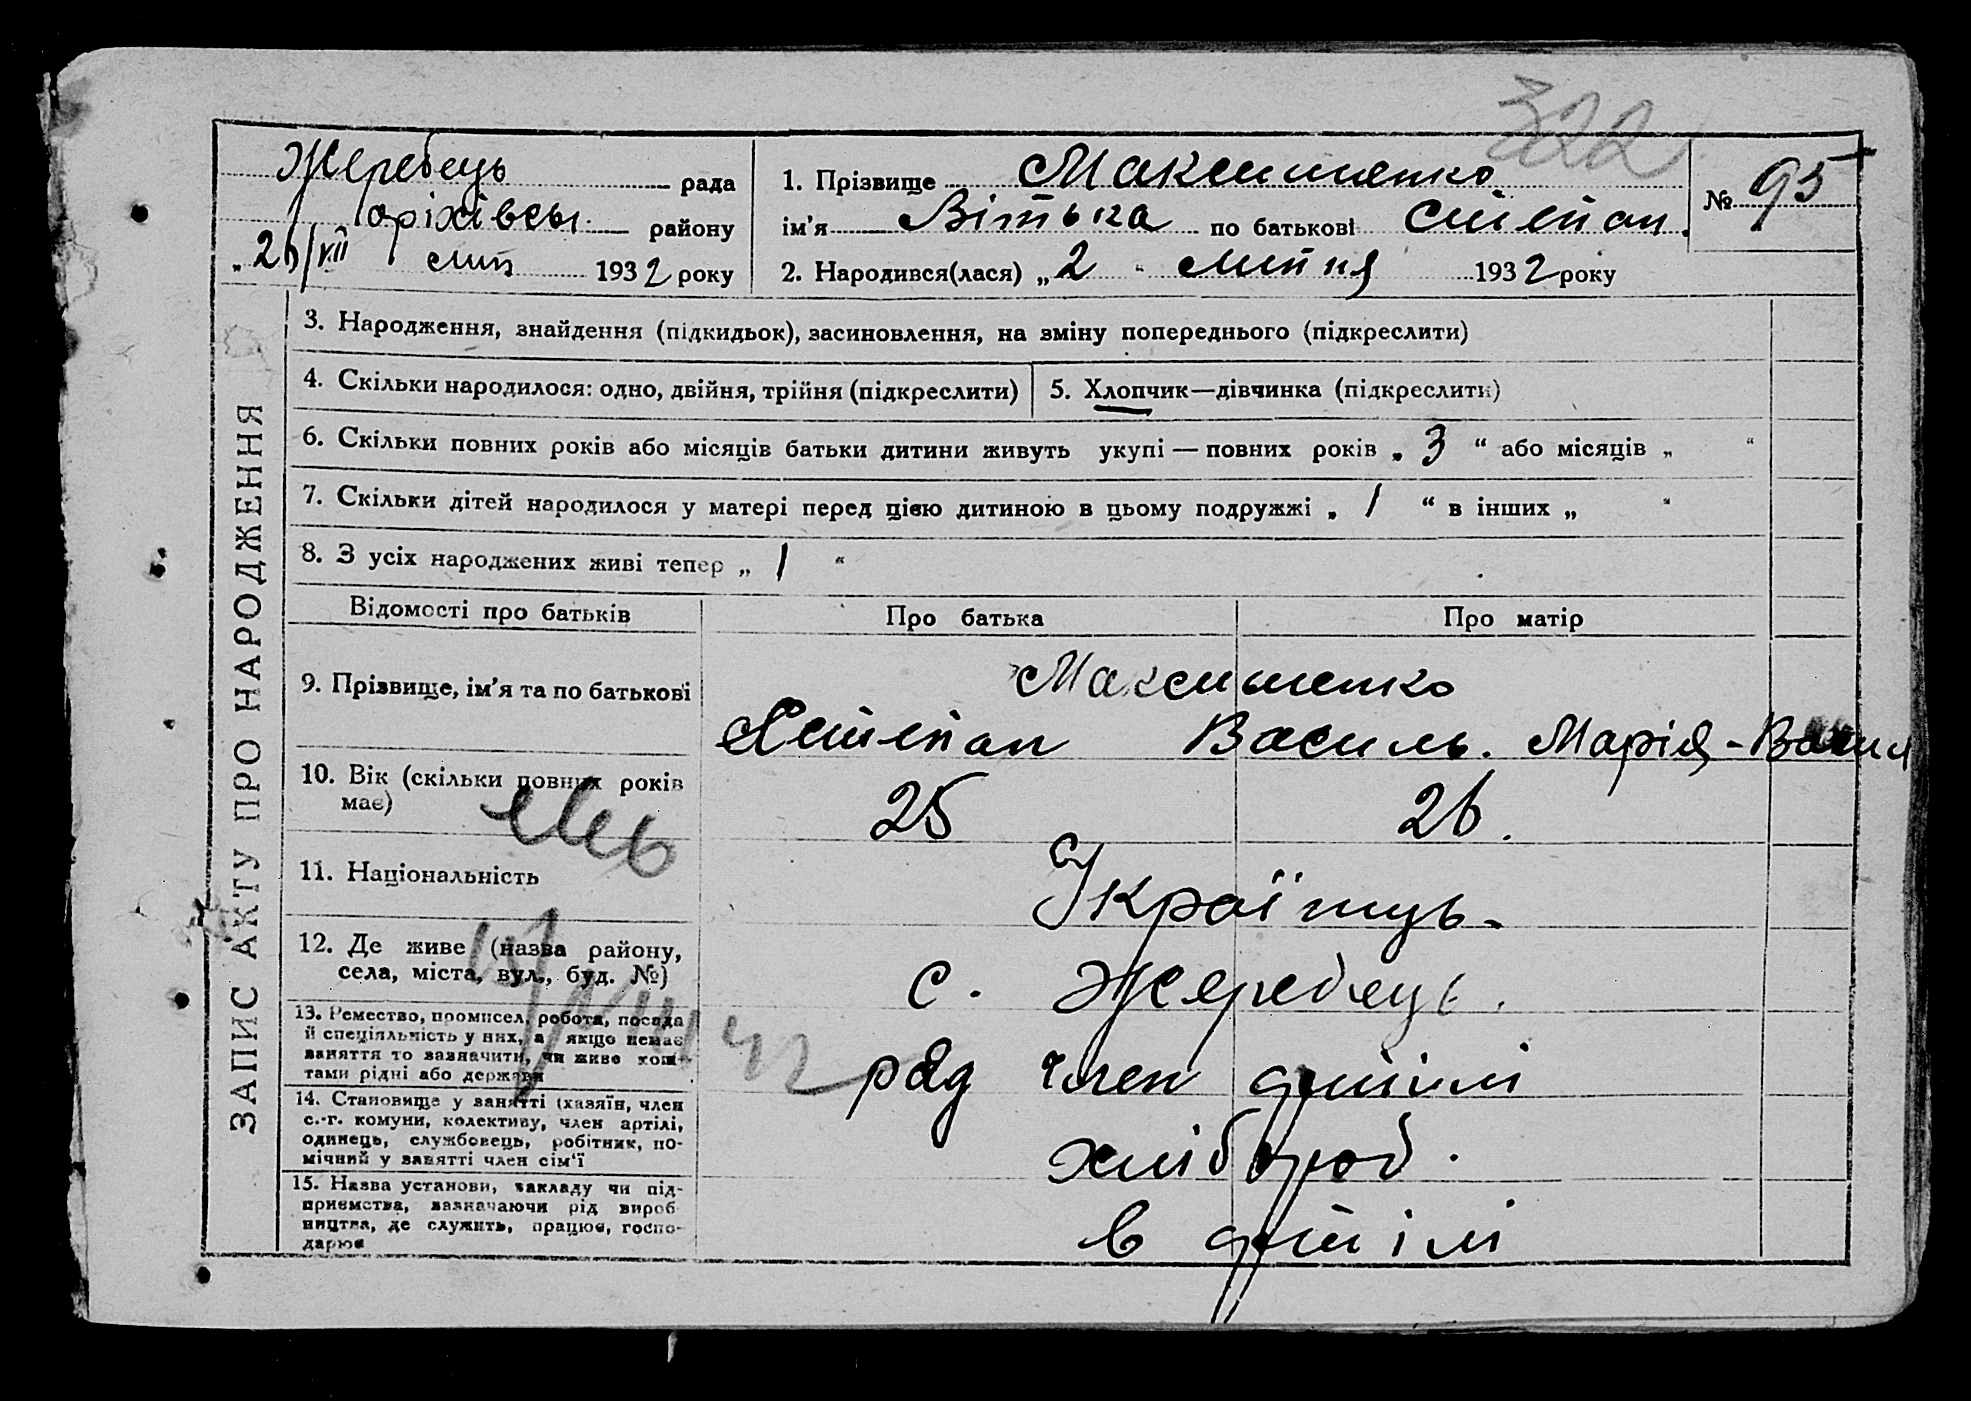 322
Жеребець рада
оріхівськ. району
„26/VII лип 1932 року
1. Прізвище Максименко
ім'я Вітька по батькові Степан.
2. Народився(лася) „2“ липня 1932 року
№ 95
ЗАПИС АКТУ ПРО НАРОДЖЕННЯ
3. Народження, знайдення (підкидьок), засиновлення, на зміну попереднього (підкреслити)
4. Скільки народилося: одно, двійня, трійня (підкреслити)
5. Хлопчик—дівчинка (підкреслити)
6. Скільки повних років або місяців батьки дитини живуть укупі — повних років „ 3 “ або місяців „ “
7. Скільки дітей народилося у матері перед цією дитиною в цьому подружжі „ 1 “ в інших „ “
8. З усіх народжених живі тепер „ 1 “
Відомості про батьків
Про батька
Про матір
9. Прізвище, ім'я та по батькові
Максименко
Степан Василь. Марія - Васил
10. Вік (скільки повних років
має)
25
26.
11. Національність
Українць.
12. Де живе (назва району,
села, міста, вул., буд. №)
с. Жеребець.
13. Ремество, промисел, робота, посада
й спеціяльність у них, а якщо немає
заняття то зазначити, чи живе кош-
тами рідні або держави
ряд член артілі
14. Становище у занятті (хазяїн, член
с.-г. комуни, колективу, член артілі,
одинець, службовець, робітник, по-
мічний у занятті член сім'ї
хлібороб.
15. Назва установи, закладу чи під-
приємства, зазначаючи рід вироб-
ництва, де служить, працює, госпо-
дарює
в артілі